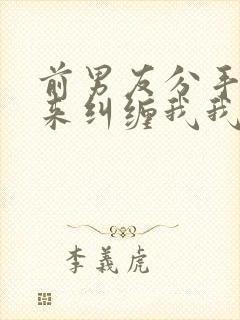 前男友分手
来纠缠我我
李義虎